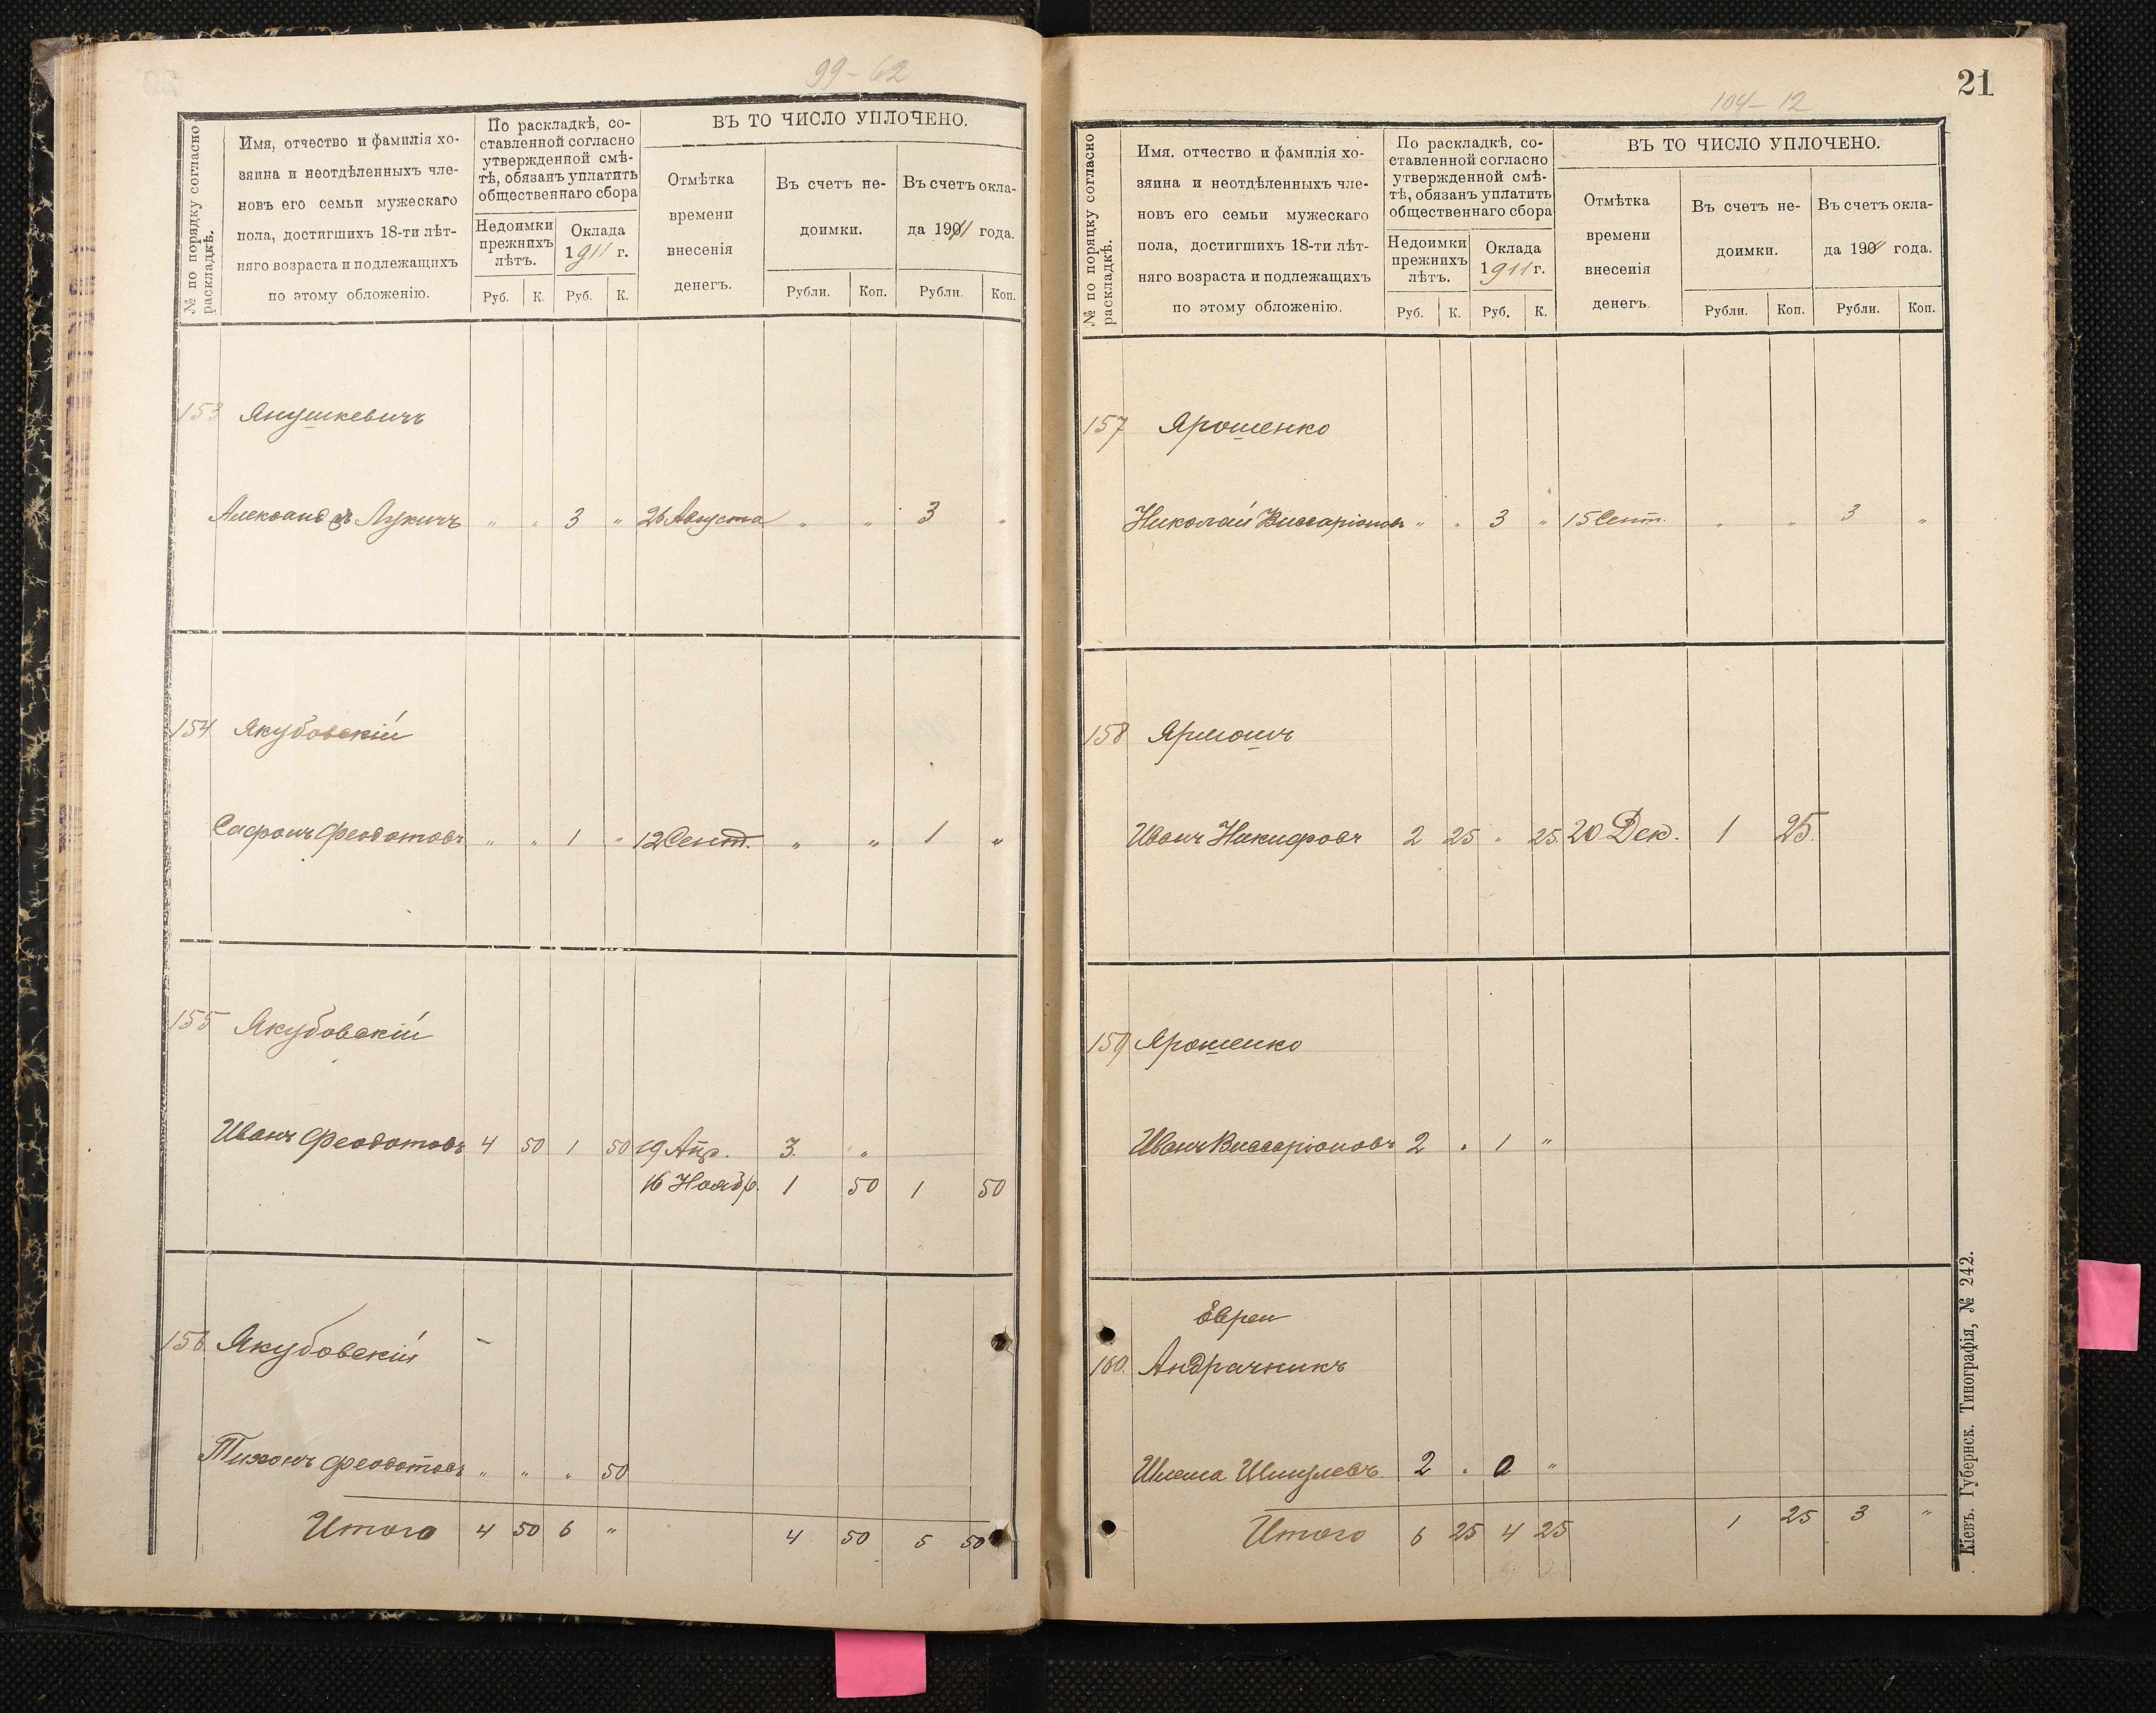 99-62
№ по порядку согласно раскладкѣ.
Имя, отчество и фамилія хо-
зяина и неотдѣленныхъ чле-
новъ его семьи мужескаго
пола, достигшихъ 18-ти лѣт-
няго возраста и подлежащихъ
по этому обложенію.
По раскладкѣ, со-
ставленной согласно
утвержденной смѣ-
тѣ, обязанъ уплатить
общественнаго сбора
Недоимки
прежнихъ
лѣтъ.
Оклада
1911 г.
Руб. К. Руб. К.
ВЪ ТО ЧИСЛО УПЛОЧЕНО.
Отмѣтка
времени
внесенія
денегъ.
Въ счетъ не-
доимки.
Въ счетъ окла-
да 1911 года.
Рубли. Коп. Рубли. Коп.
153 Янушкевичъ
Александръ Лукичъ " " 3 " 26 Августа " " 3 "
154 Якубовскій
Сафронъ Феодотовъ " " 1 " 12 Сент. " " 1 "
155 Якубовскій
Иванъ Феодотовъ 4 50 1 50 19 Апр. 3. "
16 Ноябр. 1 50 1 50
156 Якубовскій
Тихонъ Феодотовъ " " " 50
Итого 4 50 6 " 4 50 5 50
21
104-12
№ по порядку согласно раскладкѣ.
Имя. отчество и фамилія хо-
зяина и неотдѣленныхъ чле-
новъ его семьи мужескаго
пола, достигшихъ 18-ти лѣт-
няго возраста и подлежащихъ
по этому обложенію.
По раскладкѣ, со-
ставленной согласно
утвержденной смѣ-
тѣ, обязанъ уплатить
общественнаго сбора
Недоимки
прежнихъ
лѣтъ.
Оклада
1911 г.
Руб. К. Руб. К.
ВЪ ТО ЧИСЛО УПЛОЧЕНО.
Отмѣтка
времени
внесенія
денегъ.
Въ счетъ не-
доимки.
Въ счетъ окла-
да 190 года.
Рубли. Коп. Рубли. Коп.
157 Ярошенко
Николай Виссаріоновъ " " 3 " 15 Сент. " " 3 "
158
Иванъ Никифровъ 2 25 " 25. 20 Дек. 1 25.
159 Ярошенко
Иванъ Виссаріоновъ 2 " 1 "
Евреи
160. Андрачникъ
Шлема Шмулевъ 2 " 0 "
Итого 6 25 4 25 1 25 3 "
Кіевъ. Губернск. Типографія, № 242.